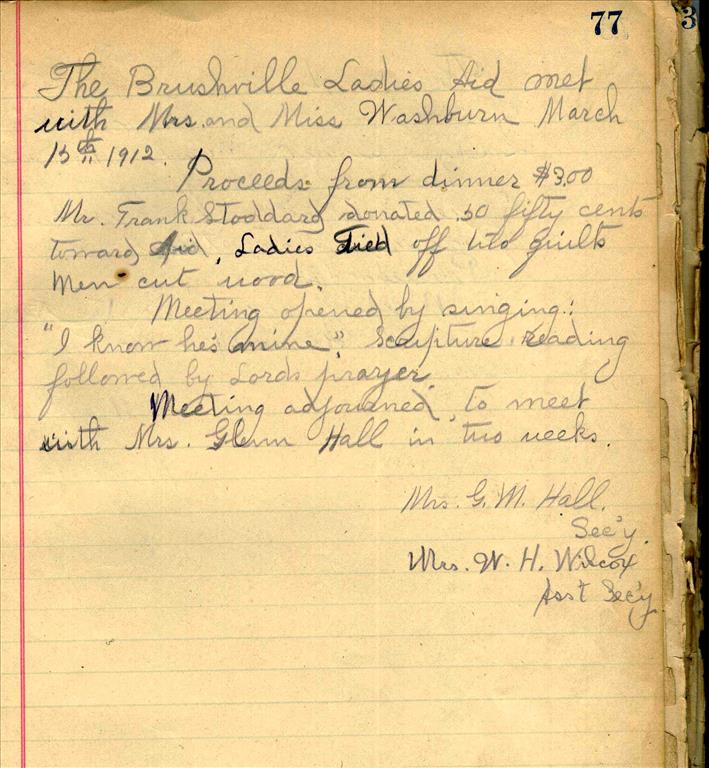 77
3
The Brushville Ladies Aid met
with Mrs. and Miss Washburn March
15th 1912.
Proceeds from dinner $3.00
Mr. Frank Stoddard donated .50 fifty cents
toward Aid, Ladies Tied off two quilts
Men cut wood.
Meeting opened by singing:
"I know he's mine", Scripture reading
followed by Lords prayer.
Meeting adjourned to meet
with Mrs. Glenn Hall in two weeks.
Mrs. G. M. Hall.
Sec'y.
Mrs. W. H. Wilcox
Ass't Sec'y